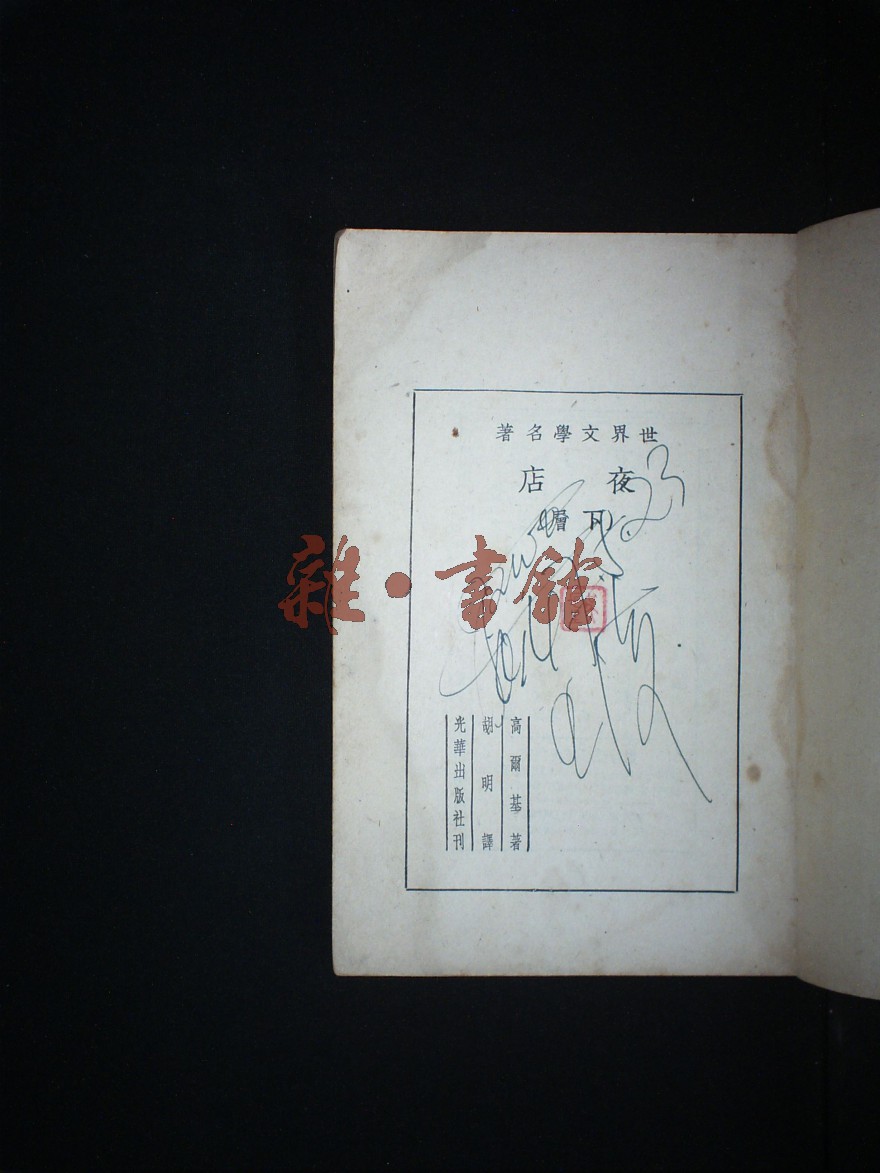 世界文學名著
夜店
(下層)
雜·書館
高爾基著
胡明譯
光華出版社刊